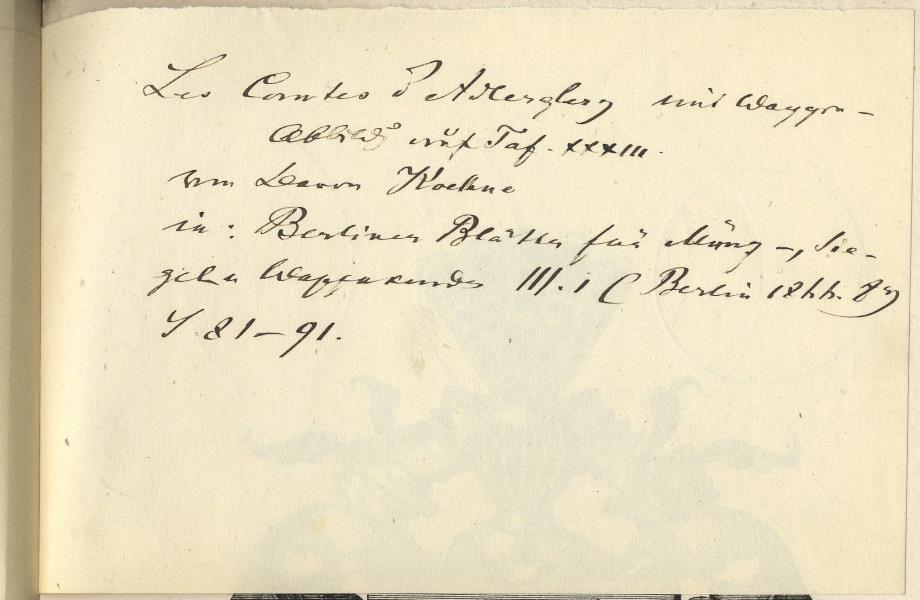 Les Comtes d'Adlerberg mit Wappen-
Abbildg auf Taf. XXXIII.
von Baron Koehne
in: Berliner Blätter für Münz-, Sie-
gel u Wappenkunde III. 1 (Berlin 1866. 8°)
S 81-91.